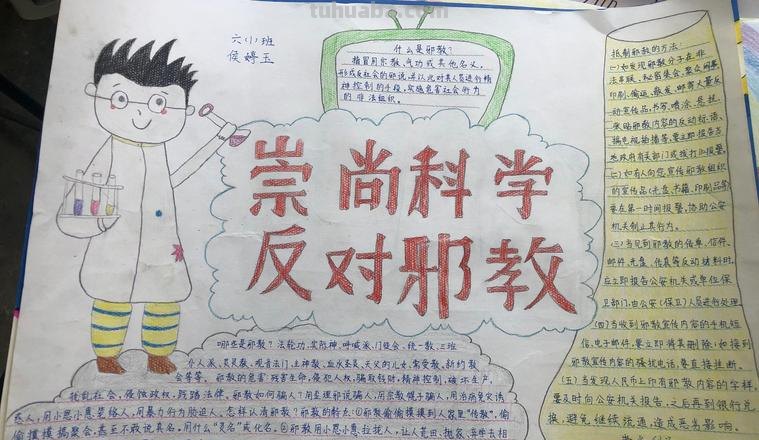 tuhuaba.com
六(1)班
侯婷玉
什么是邪教?
指冒用宗教、气功或其他名义,
形成反社会的邪说,并以此对其人员进行精
神控制的手段,实施危害社会行为
的非法组织。
崇尚科学
反对邪教
抵制邪教的方法:
(一)如发现邪教分子在非
法串联、秘密集会、聚众闹事
印刷、偷运、散发、邮寄大量反
动宣传品,书写、喷涂、悬挂、
张贴邪教内容的反动标语,
搞电视插播等,要立即报告当
地政府有关部门或拨打110报警。
(二)如有人向您宣传邪教组织
的宣传品(光盘、书籍、印刷品等)
要在第一时间报警,协助公安
机关制止其行为。
(三)当见到邪教的传单、信件、
邮件、光盘、传真等反动材料时,
应立即报告公安机关或单位保
卫部门,由公安(保卫)人员进行处理
(四)当收到邪教宣传内容的手机短
信、电子邮件,要立即将其删除,如接到
邪教宣传内容的骚扰电话,要直接挂断。
(五)当发现人民币上印有邪教内容的字样,
要及时向公安机关报告,之后再到银行兑
换,避免继续流通,造成恶劣影响。
哪些是邪教?法轮功、实际神、呼喊派、门徒会、统一教、三班
仆人派、灵灵教、观音法门、主神教、血水圣灵、天父的儿女、常受教、新约教
会等等。邪教的危害:残害生命,侵犯人权,骗取钱财,精神控制,破坏生产,
扰乱社会,侵蚀政权,践踏法律。邪教如何骗人?用歪理邪说骗人,用宗教幌子骗人,用治病免灾诱
惑人,用小恩小惠笼络人,用暴力行为胁迫人。怎样认清邪教?邪教的特点:①邪教偷偷摸摸到人家里“传教”,偷
偷摸摸搞聚会,甚至不敢说真名。用什么“灵名”或化名。②邪教用小恩小惠拉拢人,让人荒田、抛家、弃学去相